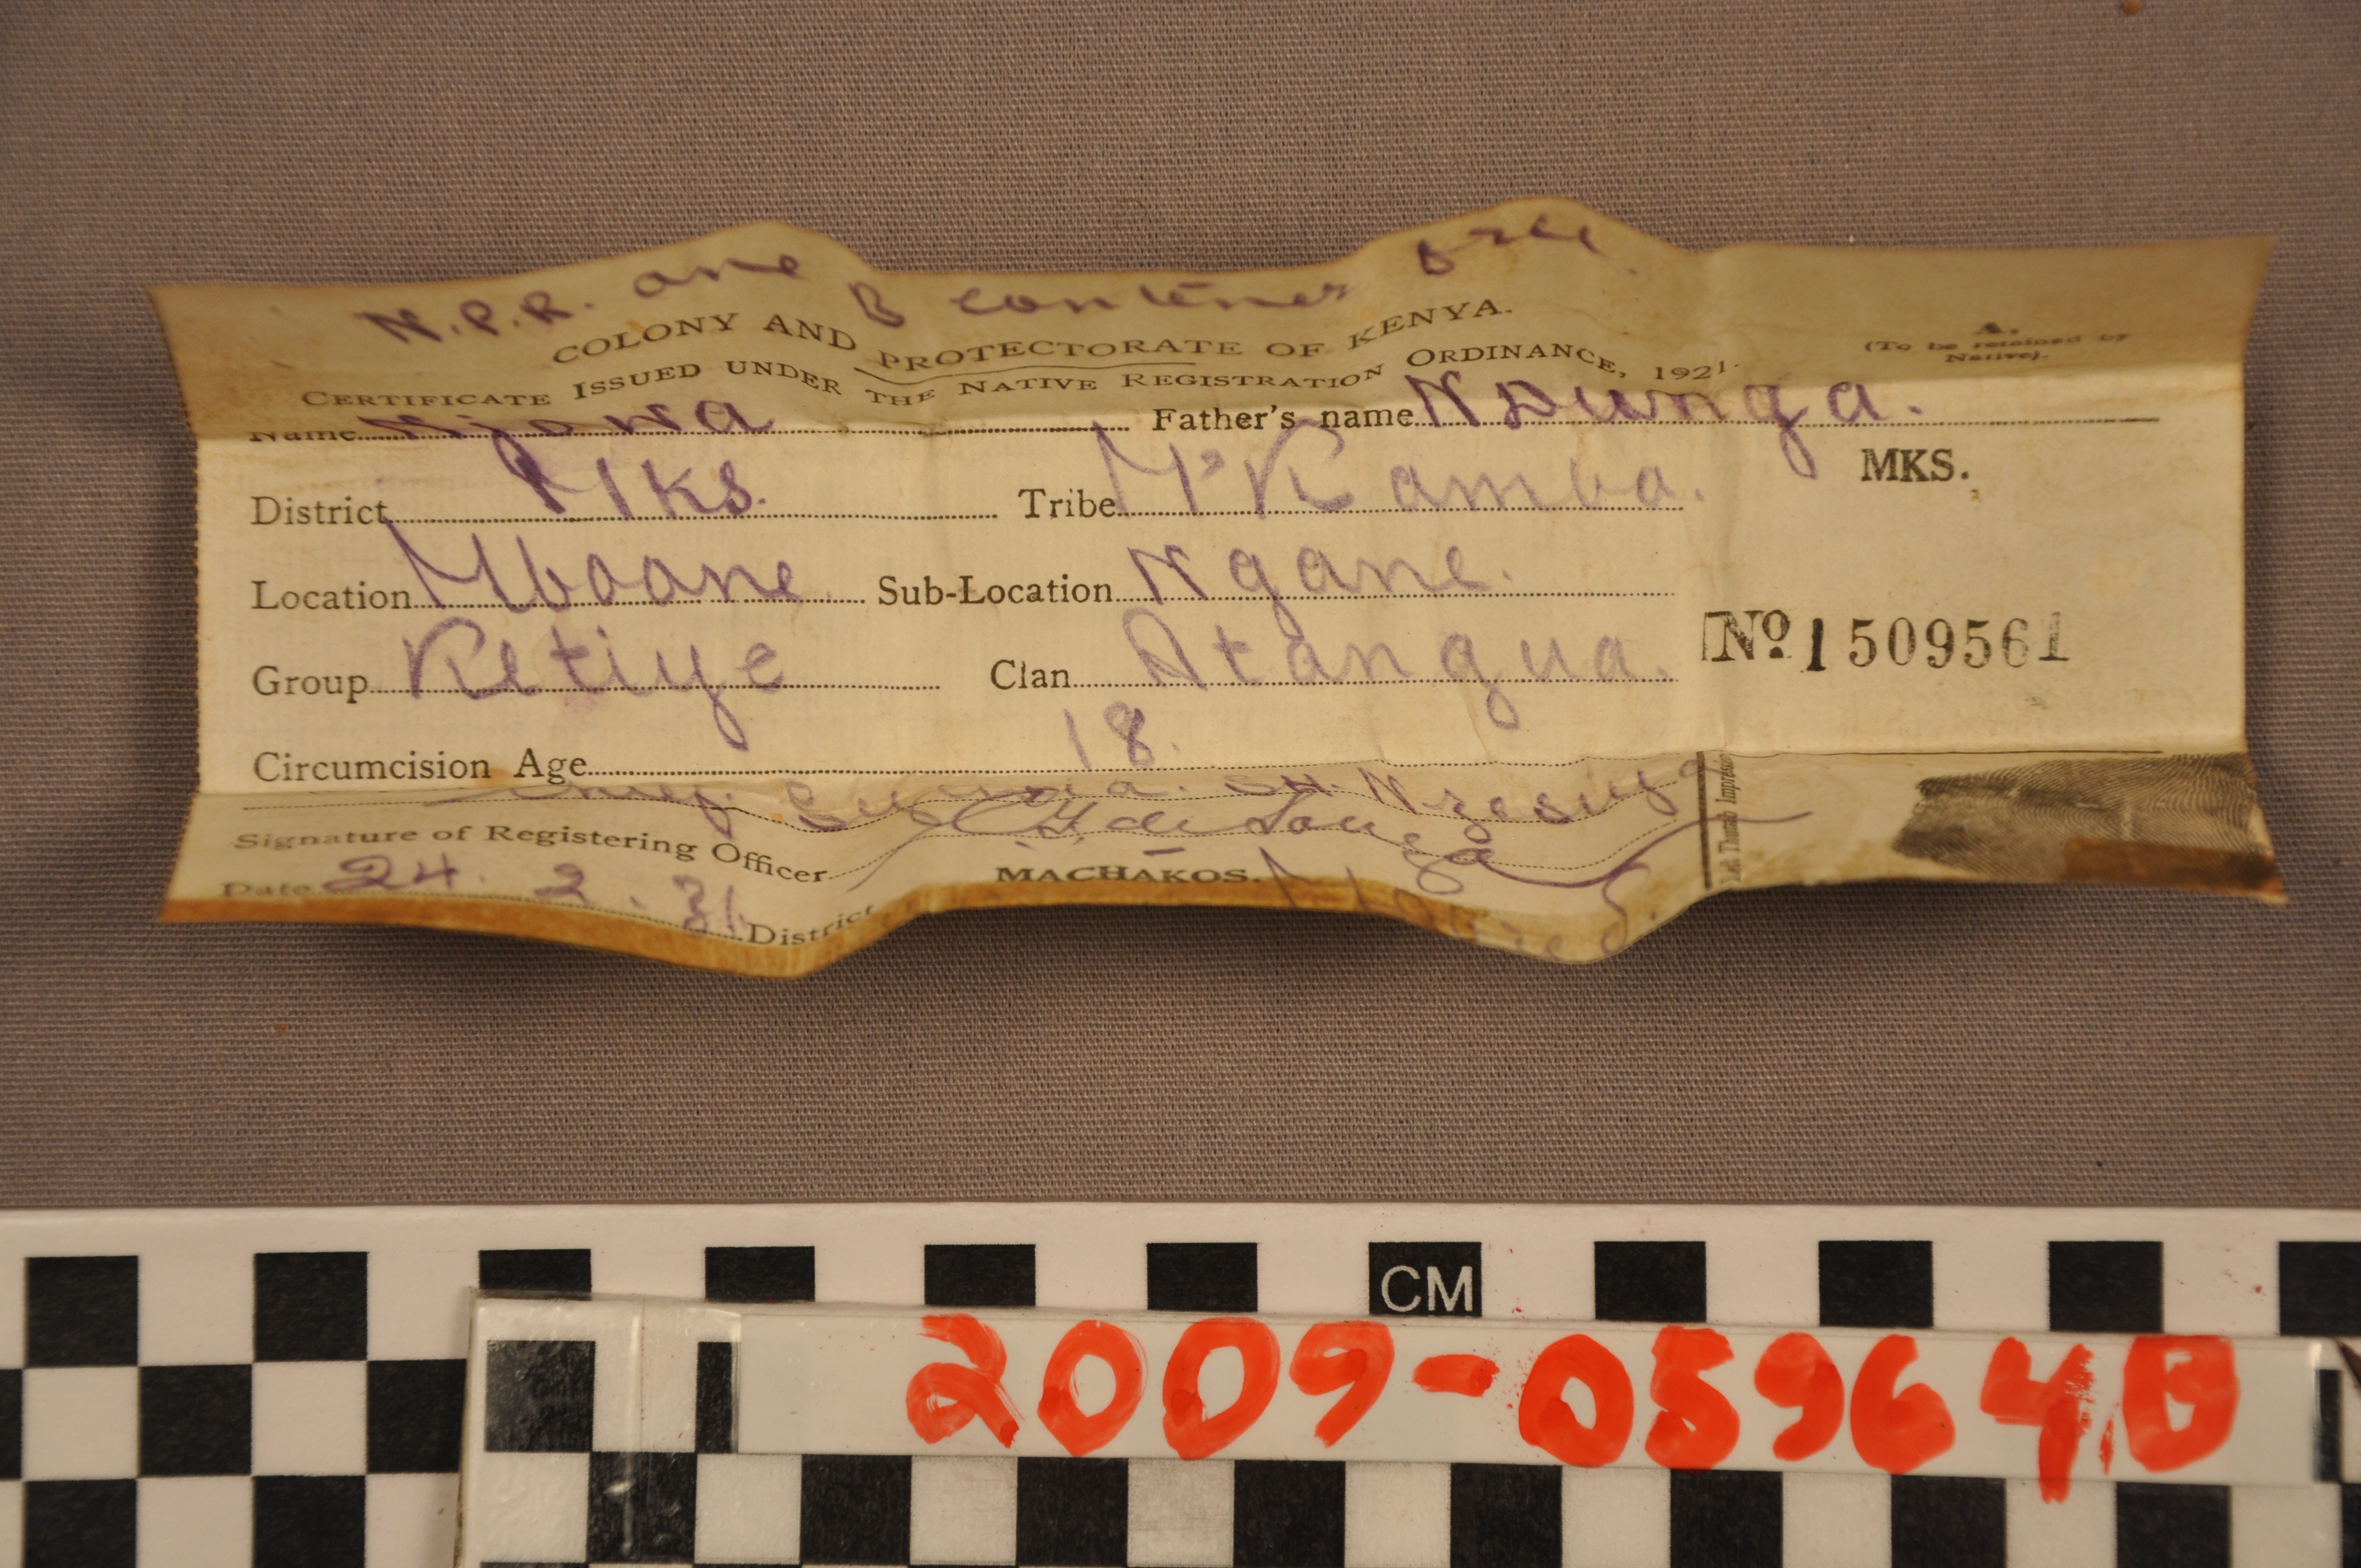 N.P.R. one B container free.
COLONY AND PROTECTORATE OF KENYA.
A.
(To be retained by Native).
CERTIFICATE ISSUED UNDER THE NATIVE REGISTRATION ORDINANCE, 1921.
Name Father's name Nsunga.
District Mks. Tribe M'Kamba. MKS.
Location Mboone Sub-Location Ngane.
Group Ketiye Clan Atangua. No. 1509561
Circumcision Age 18.
Chief.
Signature of Registering Officer de Souza
Left Thumb Impression
Date 24. 2. 31. District MACHAKOS.
CM
2009-05964B